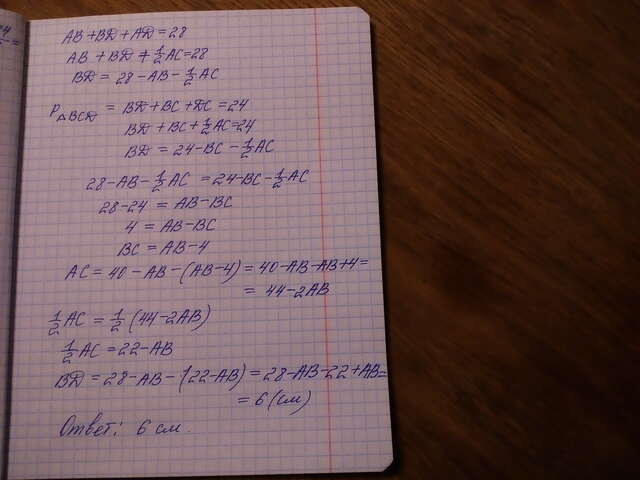 AB + BD + AD = 28
AB + BD + 1/2 AC = 28
BD = 28 - AB - 1/2 AC
P△BCD = BD + BC + DC = 24
BD + BC + 1/2 AC = 24
BD = 24 - BC - 1/2 AC
28 - AB - 1/2 AC = 24 - BC - 1/2 AC
28 - 24 = AB - BC
4 = AB - BC
BC = AB - 4
AC = 40 - AB - (AB - 4) = 40 - AB - AB + 4 =
= 44 - 2AB
1/2 AC = 1/2 (44 - 2AB)
1/2 AC = 22 - AB
BD = 28 - AB - (22 - AB) = 28 - AB - 22 + AB =
= 6 (см)
Ответ: 6 см.